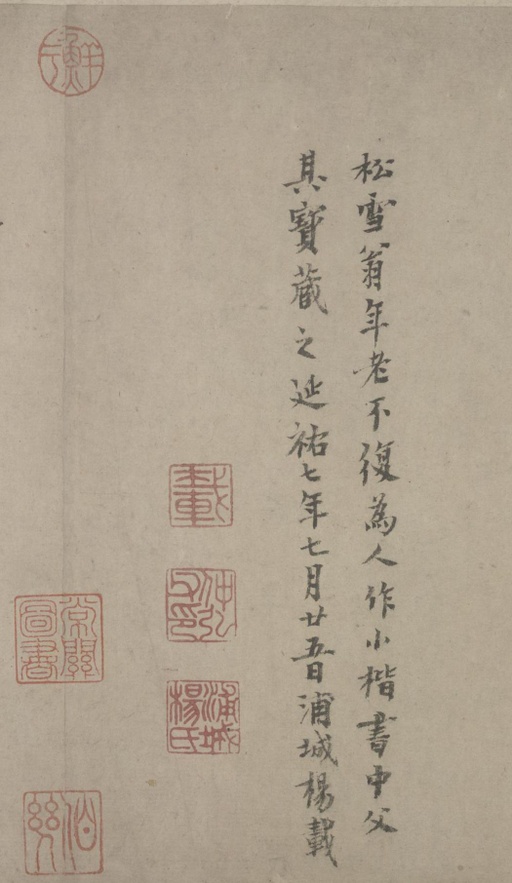 松雪翁年老不復為人作小楷書中父
其寶藏之延祐七年七月廿五日浦城楊載
載
仲弘父印
浦城楊氏
鮮